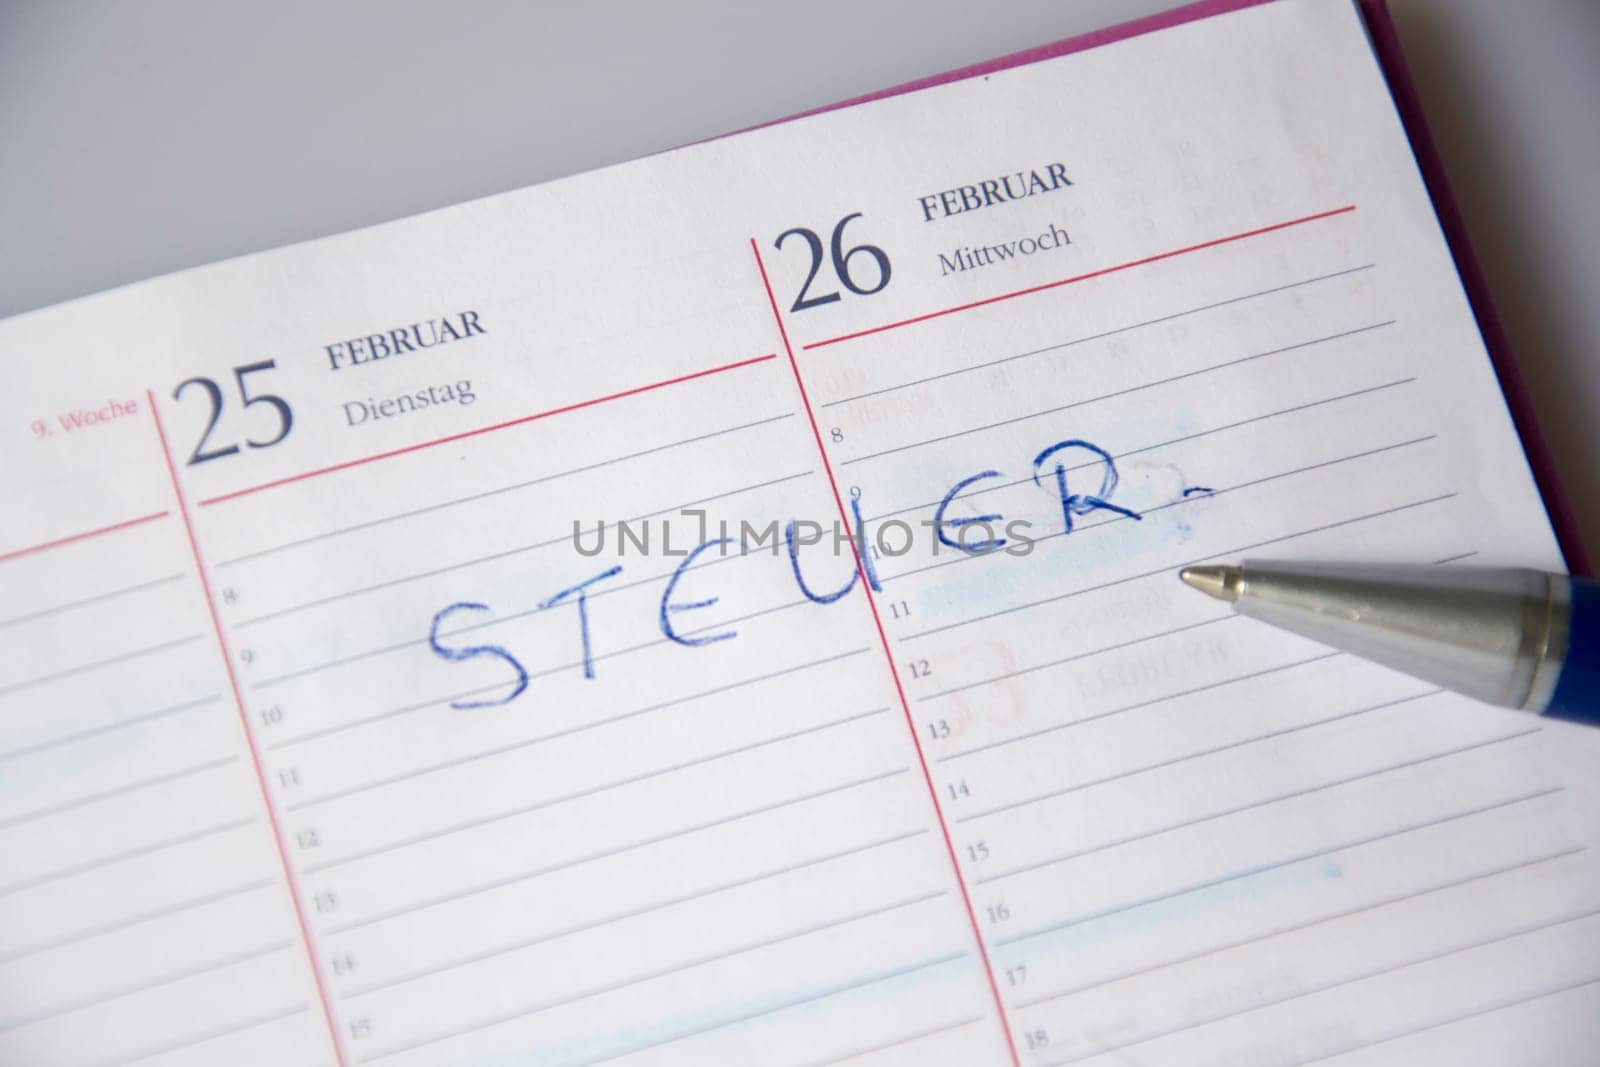 9. Woche
25 FEBRUAR
Dienstag
26 FEBRUAR
Mittwoch
STEUER -
8
9
10
11
12
13
14
15
8
9
10
11
12
13
14
15
16
17
18
UNLIMPHOTOS